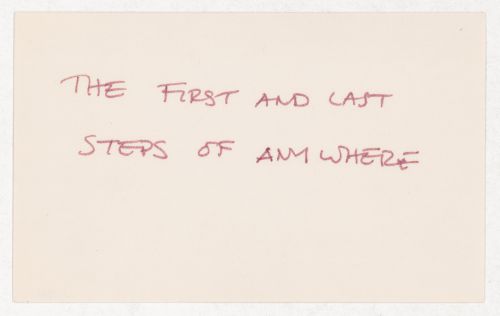 THE FIRST AND LAST
STEPS OF ANYWHERE